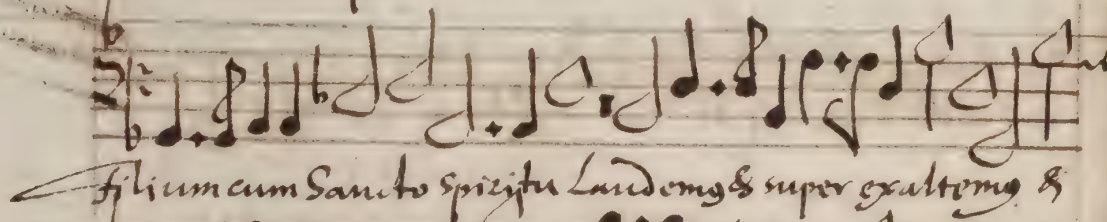 filium cum Sancto spiritu Laudemꝯ & super exaltemꝯ &